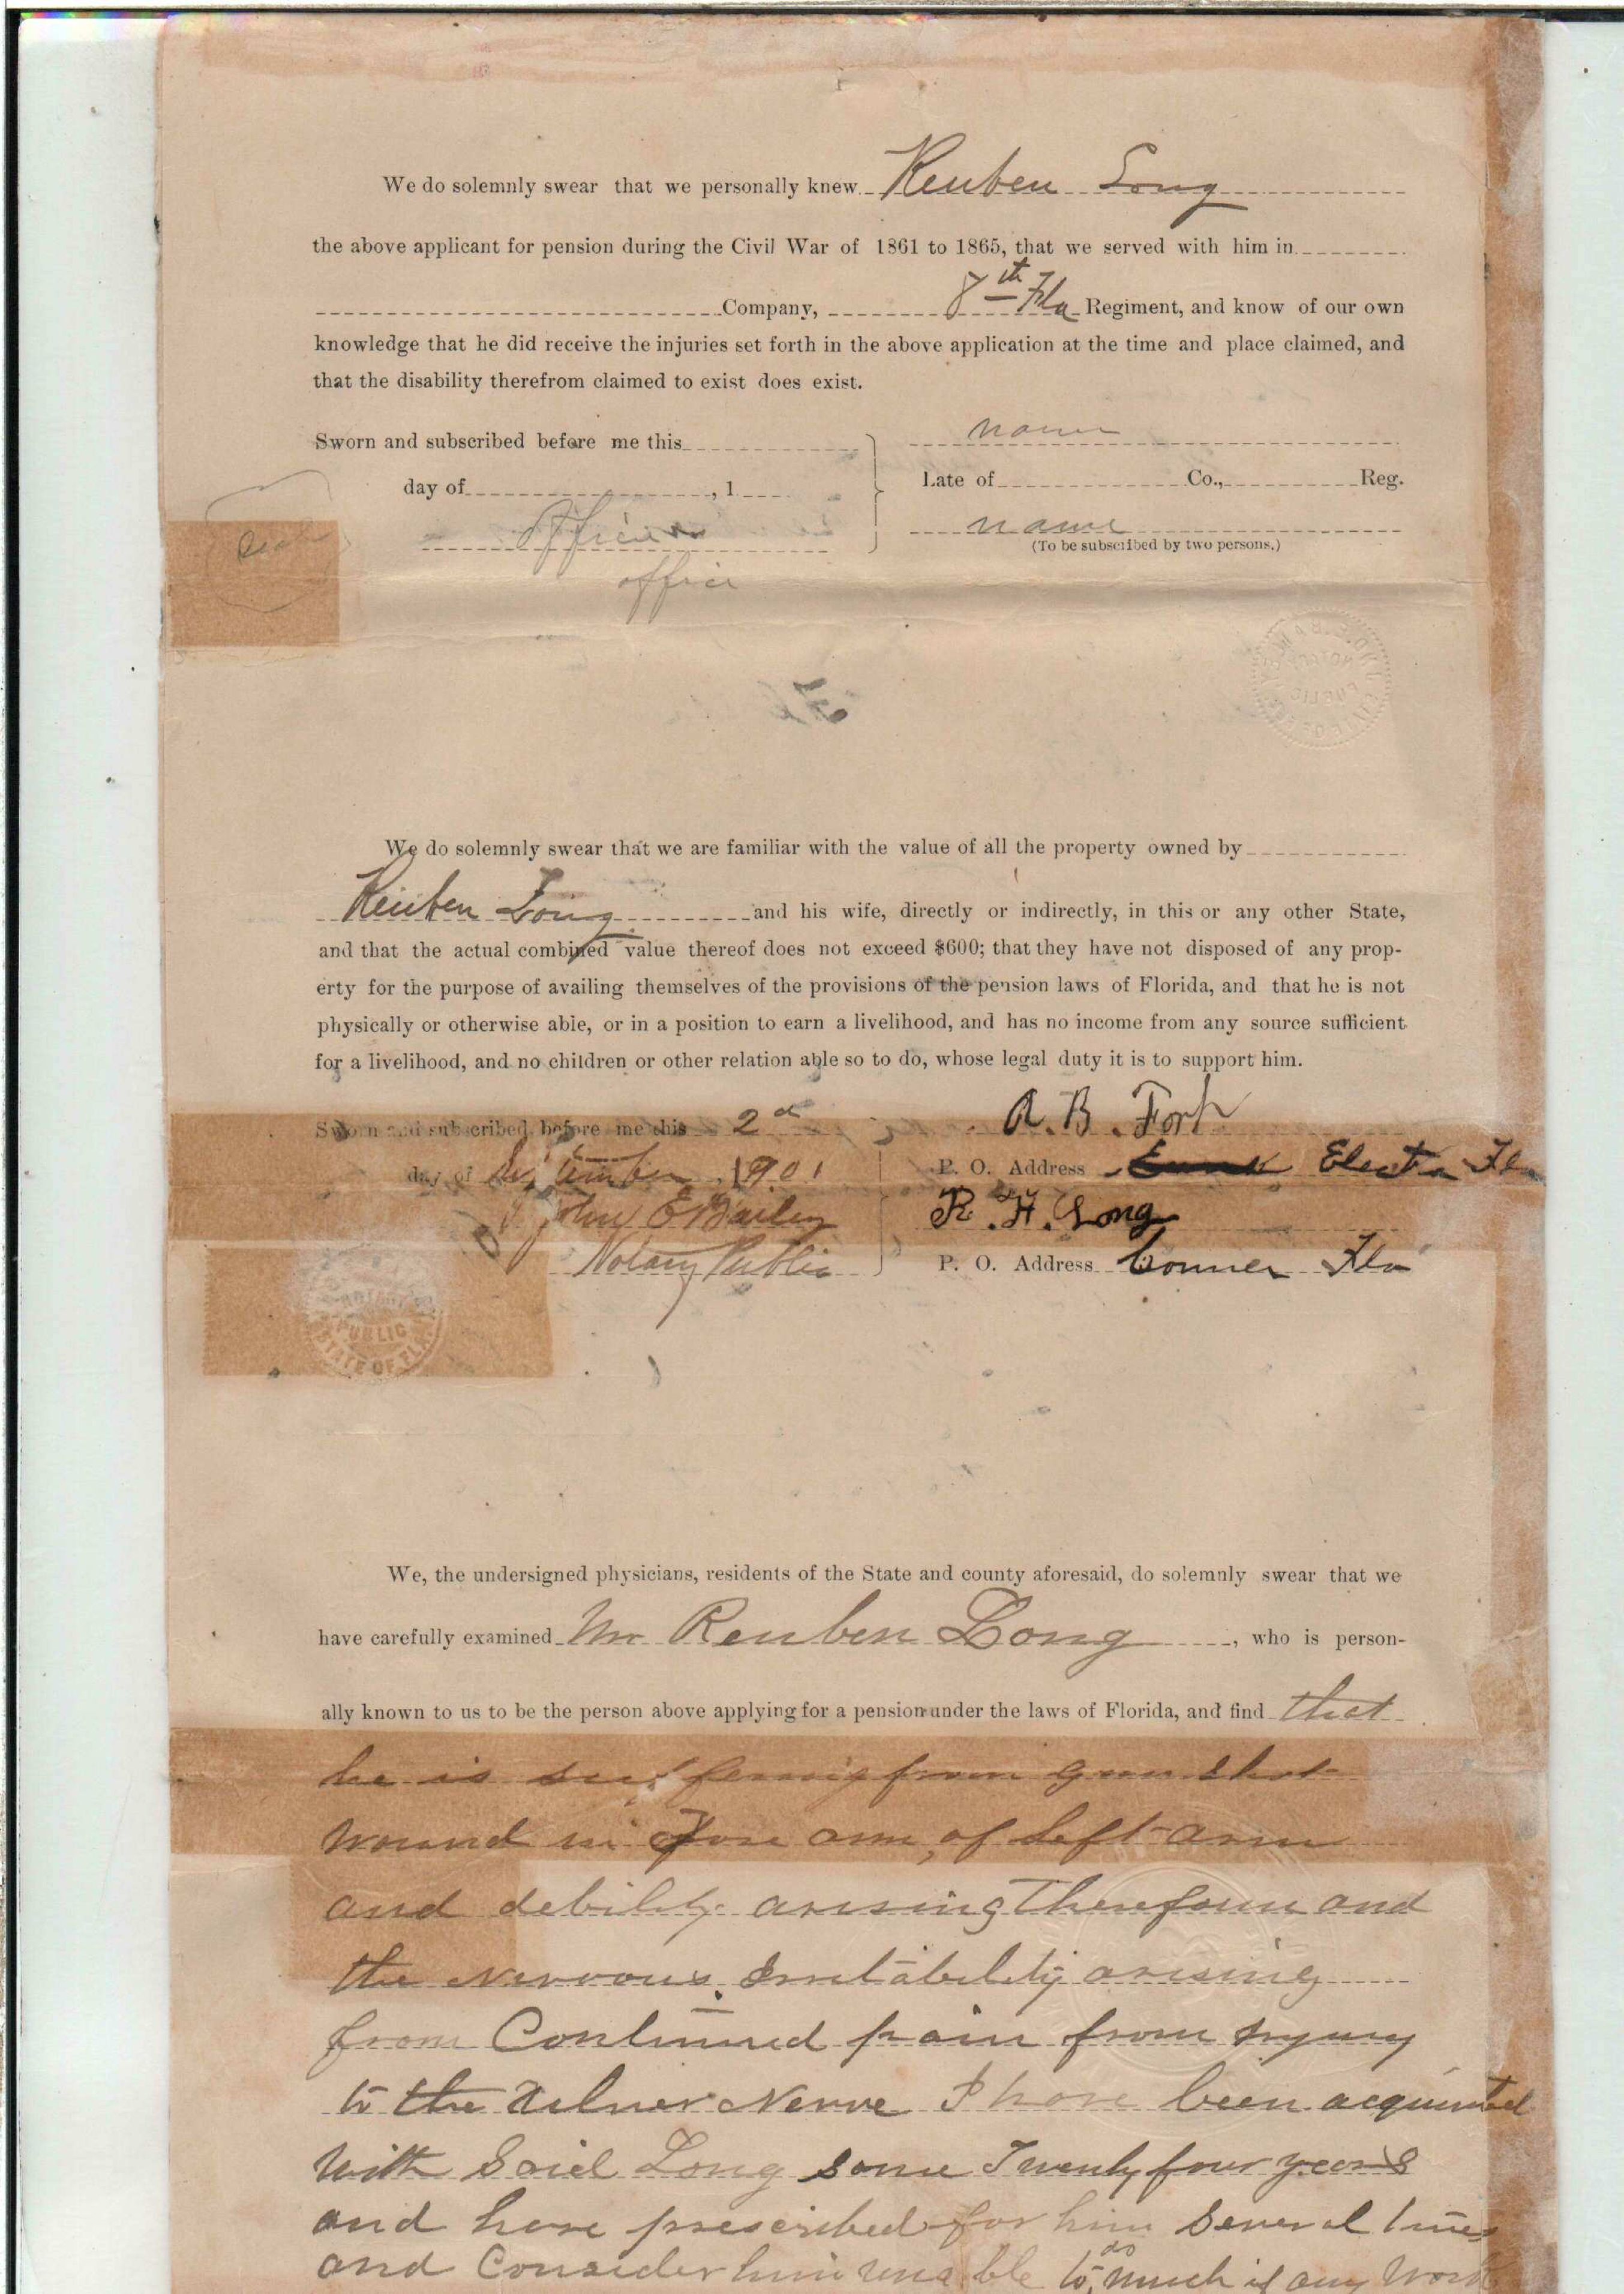 We do solemnly swear that we personally knew Reuben Long
the above applicant for pension during the Civil War of 1861 to 1865, that we served with him in
Company, 8th Fla Regiment, and know of our own
knowledge that he did receive the injuries set forth in the above application at the time and place claimed, and
that the disability therefrom claimed to exist does exist.
Sworn and subscribed before me this name
day of , 1 Late of Co., Reg.
Seal officer name
(To be subscribed by two persons.)
office
We do solemnly swear that we are familiar with the value of all the property owned by
Reuben Long and his wife, directly or indirectly, in this or any other State,
and that the actual combined value thereof does not exceed $600; that they have not disposed of any prop-
erty for the purpose of availing themselves of the provisions of the pension laws of Florida, and that he is not
physically or otherwise able, or in a position to earn a livelihood, and has no income from any source sufficient
for a livelihood, and no children or other relation able so to do, whose legal duty it is to support him.
Sworn and subscribed before me this 2d A. B. Fort
day of September, 1901 P. O. Address Electra Fla
John E Bailey R. H. Long
Notary Public P. O. Address Conner Fla
NOTARY
PUBLIC
STATE OF FLA
We, the undersigned physicians, residents of the State and county aforesaid, do solemnly swear that we
have carefully examined Mr Reuben Long, who is person-
ally known to us to be the person above applying for a pension under the laws of Florida, and find that
he is suffering from gun shot
wound in fore arm, of left arm
and debility arising therefrom and
the nervous irritability arising
from Continued pain from injury
to the Ulner Nerve I have been acquinted
with Said Long some Twenty four years
and have prescribed for him several times
and Consider him unable to do much if any work